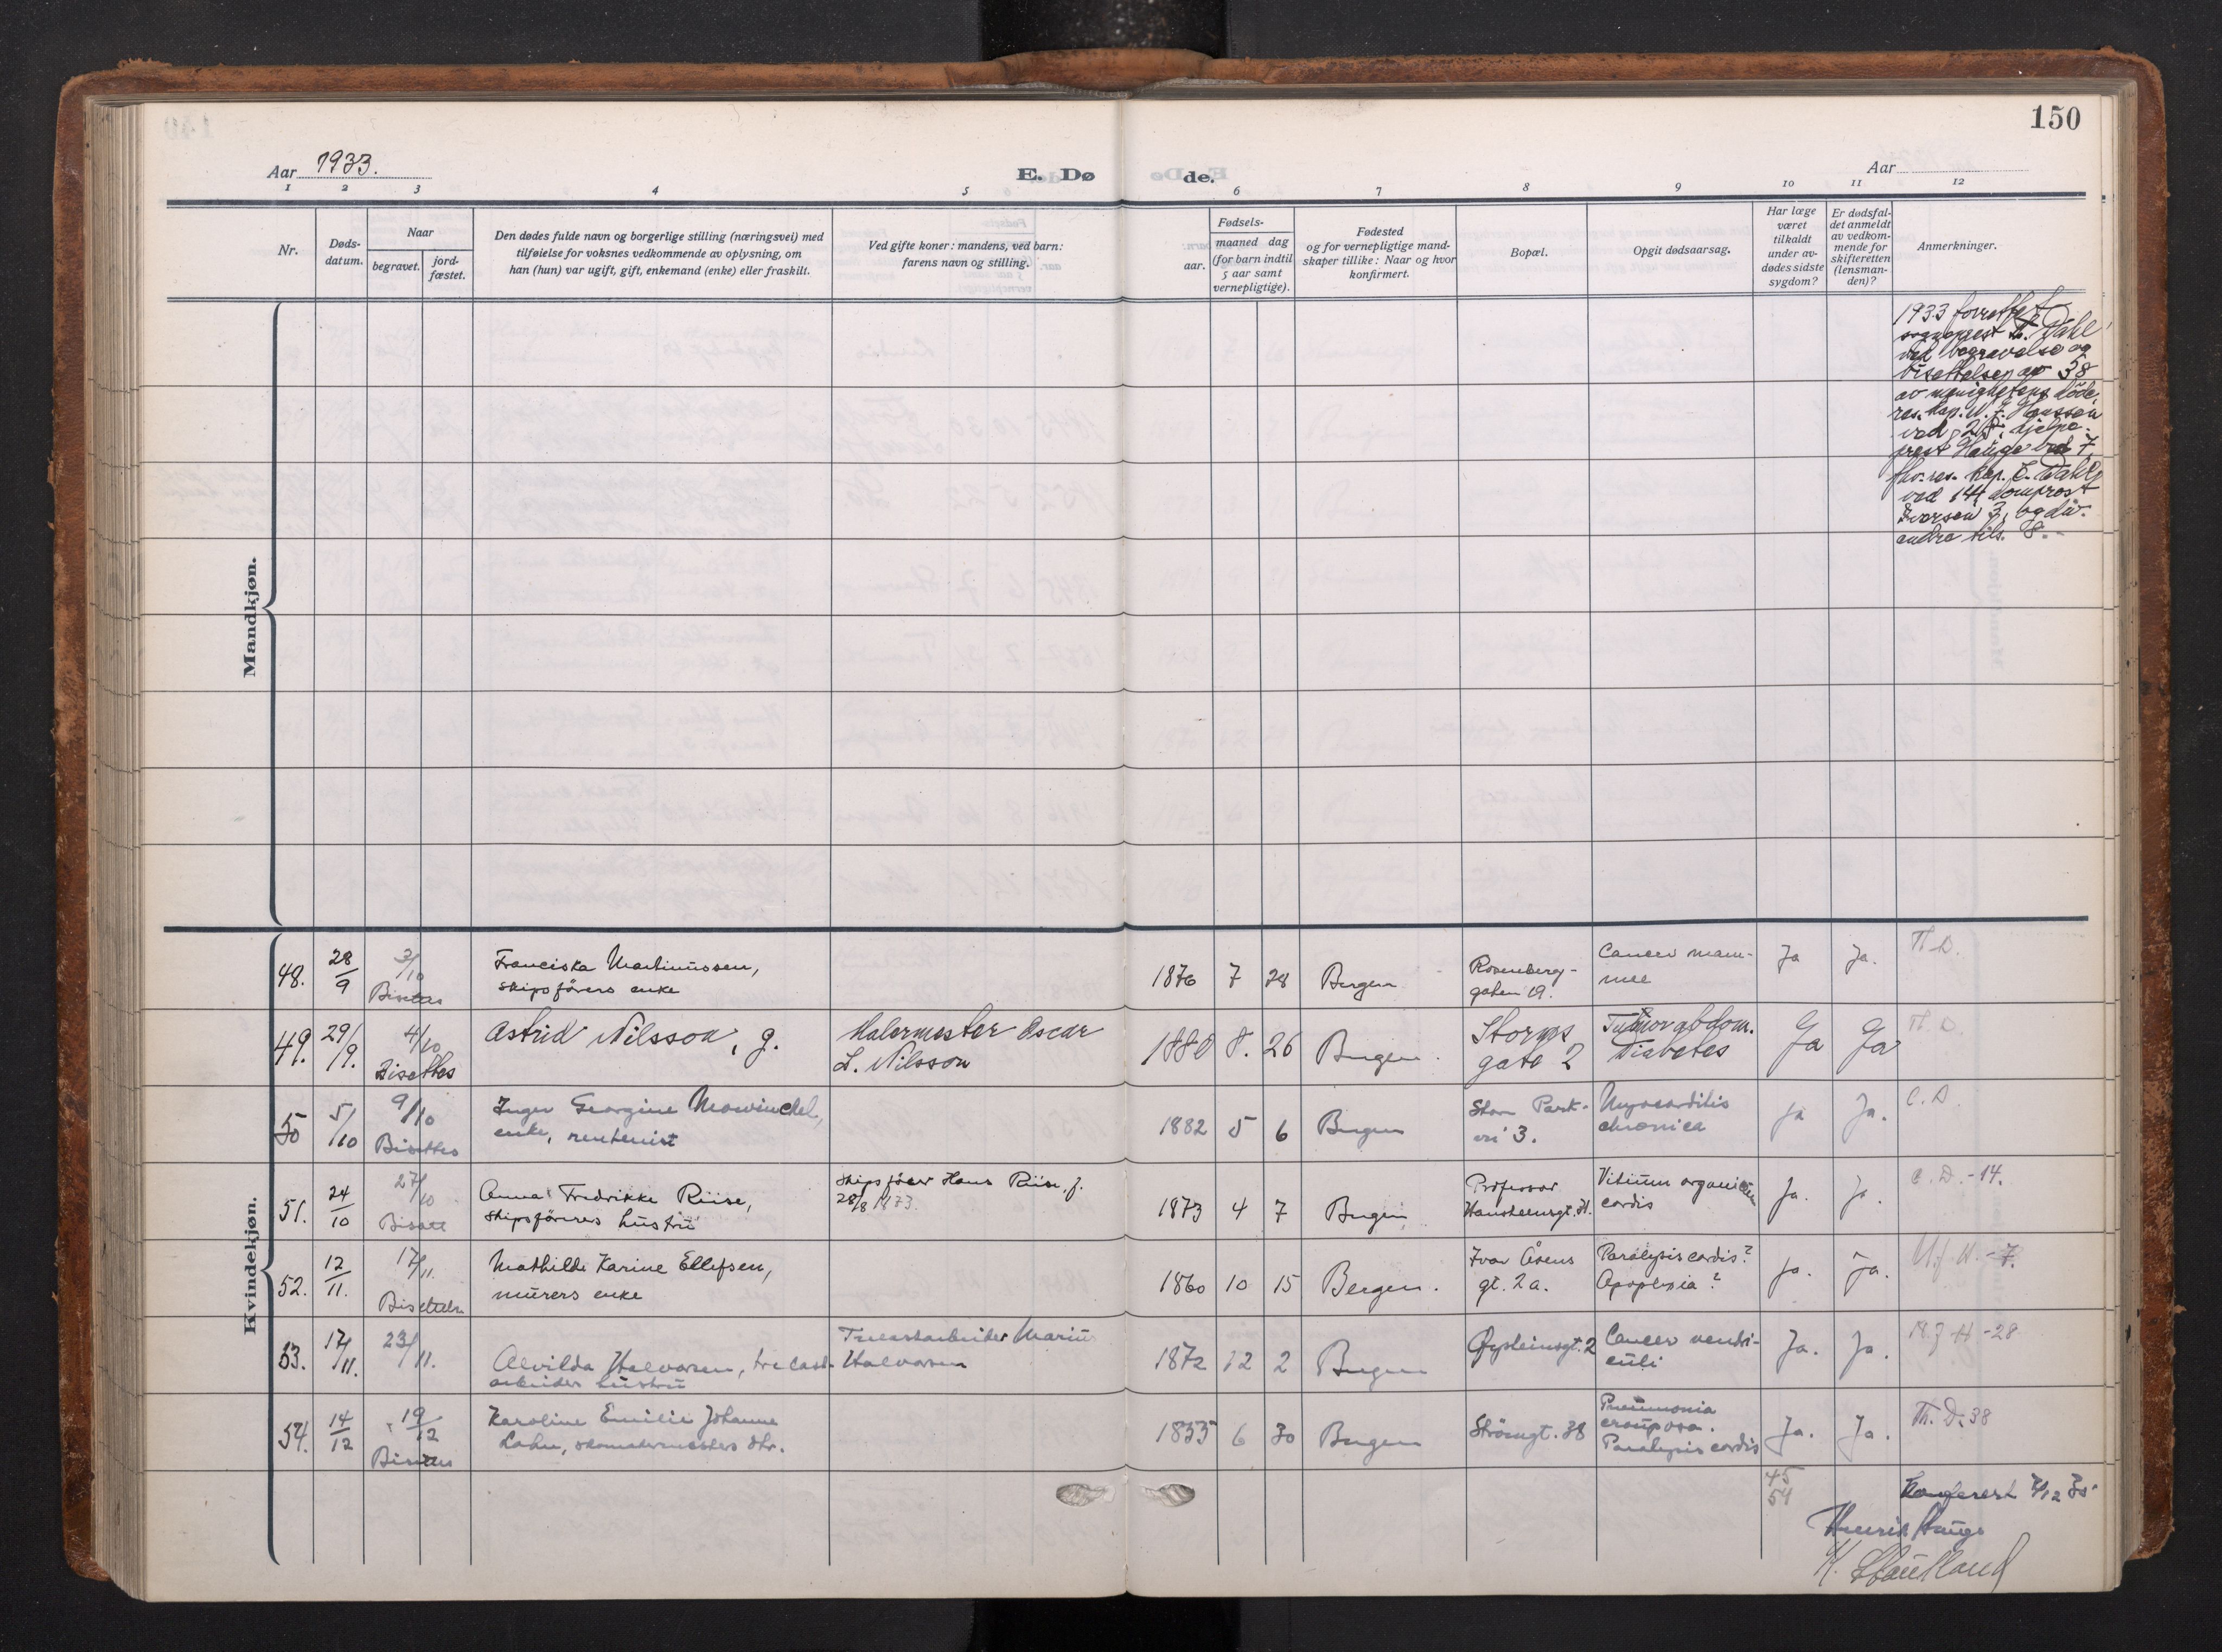 150
Aar 1933.
E. Dø de.
Aar
1 2 3 4 5 6 7 8 9 10 11 12
Nr.
Døds-
datum.
Naar
begravet.
jord-
fæstet.
Den dødes fulde navn og borgerlige stilling (næringsvei) med
tilføielse for voksnes vedkommende av oplysning, om
han (hun) var ugift, gift, enkemand (enke) eller fraskilt.
Ved gifte koner: mandens, ved barn:
farens navn og stilling.
Fødsels-
aar.
maaned dag
(for barn indtil
5 aar samt
vernepligtige).
Fødested
og for vernepligtige mand-
skaper tillike: Naar og hvor
konfirmert.
Bopæl.
Opgit dødsaarsag.
Har læge
været
tilkaldt
under av-
dødes sidste
sygdom?
Er dødsfal-
det anmeldt
av vedkom-
mende for
skifteretten
(lensman-
den)?
Anmerkninger.
Mandkjøn.
1933 forrettet
sogneprest Th. Dahl
ved begravelse og
bisettelsen av 38
av menighetens døde,
res. kap. N. J. Hanssen
ved 28, hjelpe-
prest Hauge ved 7,
fhv. res. kap. C. Dahl
ved 14, domprost
Iversen 3, og div.
andre tils. 8.
Kvindekjøn.
48. 28/9 3/10 Bisettes
Franciska Martinussen,
skipsførers enke
1876 7 28 Bergen
Rosenberg-
gaten 19.
Cancer mam-
mae
Ja Ja. Th. D.
49. 29/9. 4/10 Bisettes
Astrid Nilsson, g.
Malermester Oscar
L. Nilsson
1880 8. 26 Bergen.
Storms
gate 2
Tumor abdom.
Diabetes
Ja Ja Th. D.
50 5/10 9/10 Bisettes
Inger Georgine Mowinckel,
enke, rentenist
1882 5 6 Bergen
Store Park-
vei 3.
Myocarditis
chronica
Ja Ja. C. D.
51. 24/10 27/10 Bisatt
Anna Fredrikke Riise,
skipsførers hustru
Skipsfører Hans Riise, f.
28/8 1873.
1873 4 7 Bergen
Professor
Hansteensgt.
Vitium organicum
cordis
Ja. Ja. C. D. -14.
52. 12/11. 17/11. Bisettelse
Mathilde Karine Ellefsen,
murers enke
1860 10 15 Bergen.
Ivar Åsens
gt. 2 a.
Paralysis cordis?
Apoplexia?
Ja. Ja. -7.
53. 17/11. 23/11.
Alvilda Halvorsen, trelast-
arbeider hustru
Trelastarbeider Marius
Halvorsen
1872 12 2 Bergen
Øysteinsgt. 2
Cancer ventri-
culi
Ja. Ja. N. J. H -28
54. 14/12 19/12 Bisettes
Karoline Emilie Johanne
Lahn, skomakermesters dtr.
1855 6 30 Bergen
Strömgt. 38
Pneumonia
crouposa.
Paralysis cordis
Ja. Ja. Th. D. 38
45
54
Konferert 7/12 35
Henrik Hauge
K. Støutland